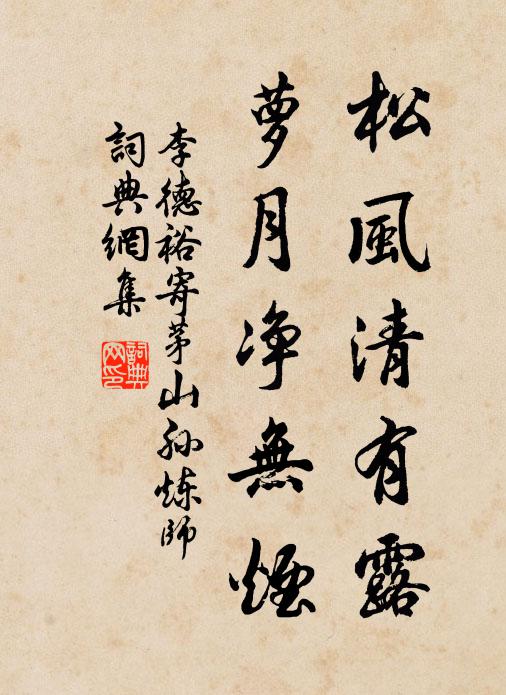 松風清有露
蘿月净無煙
李德裕寄茅山孫煉師
詞典網集
詞典網印